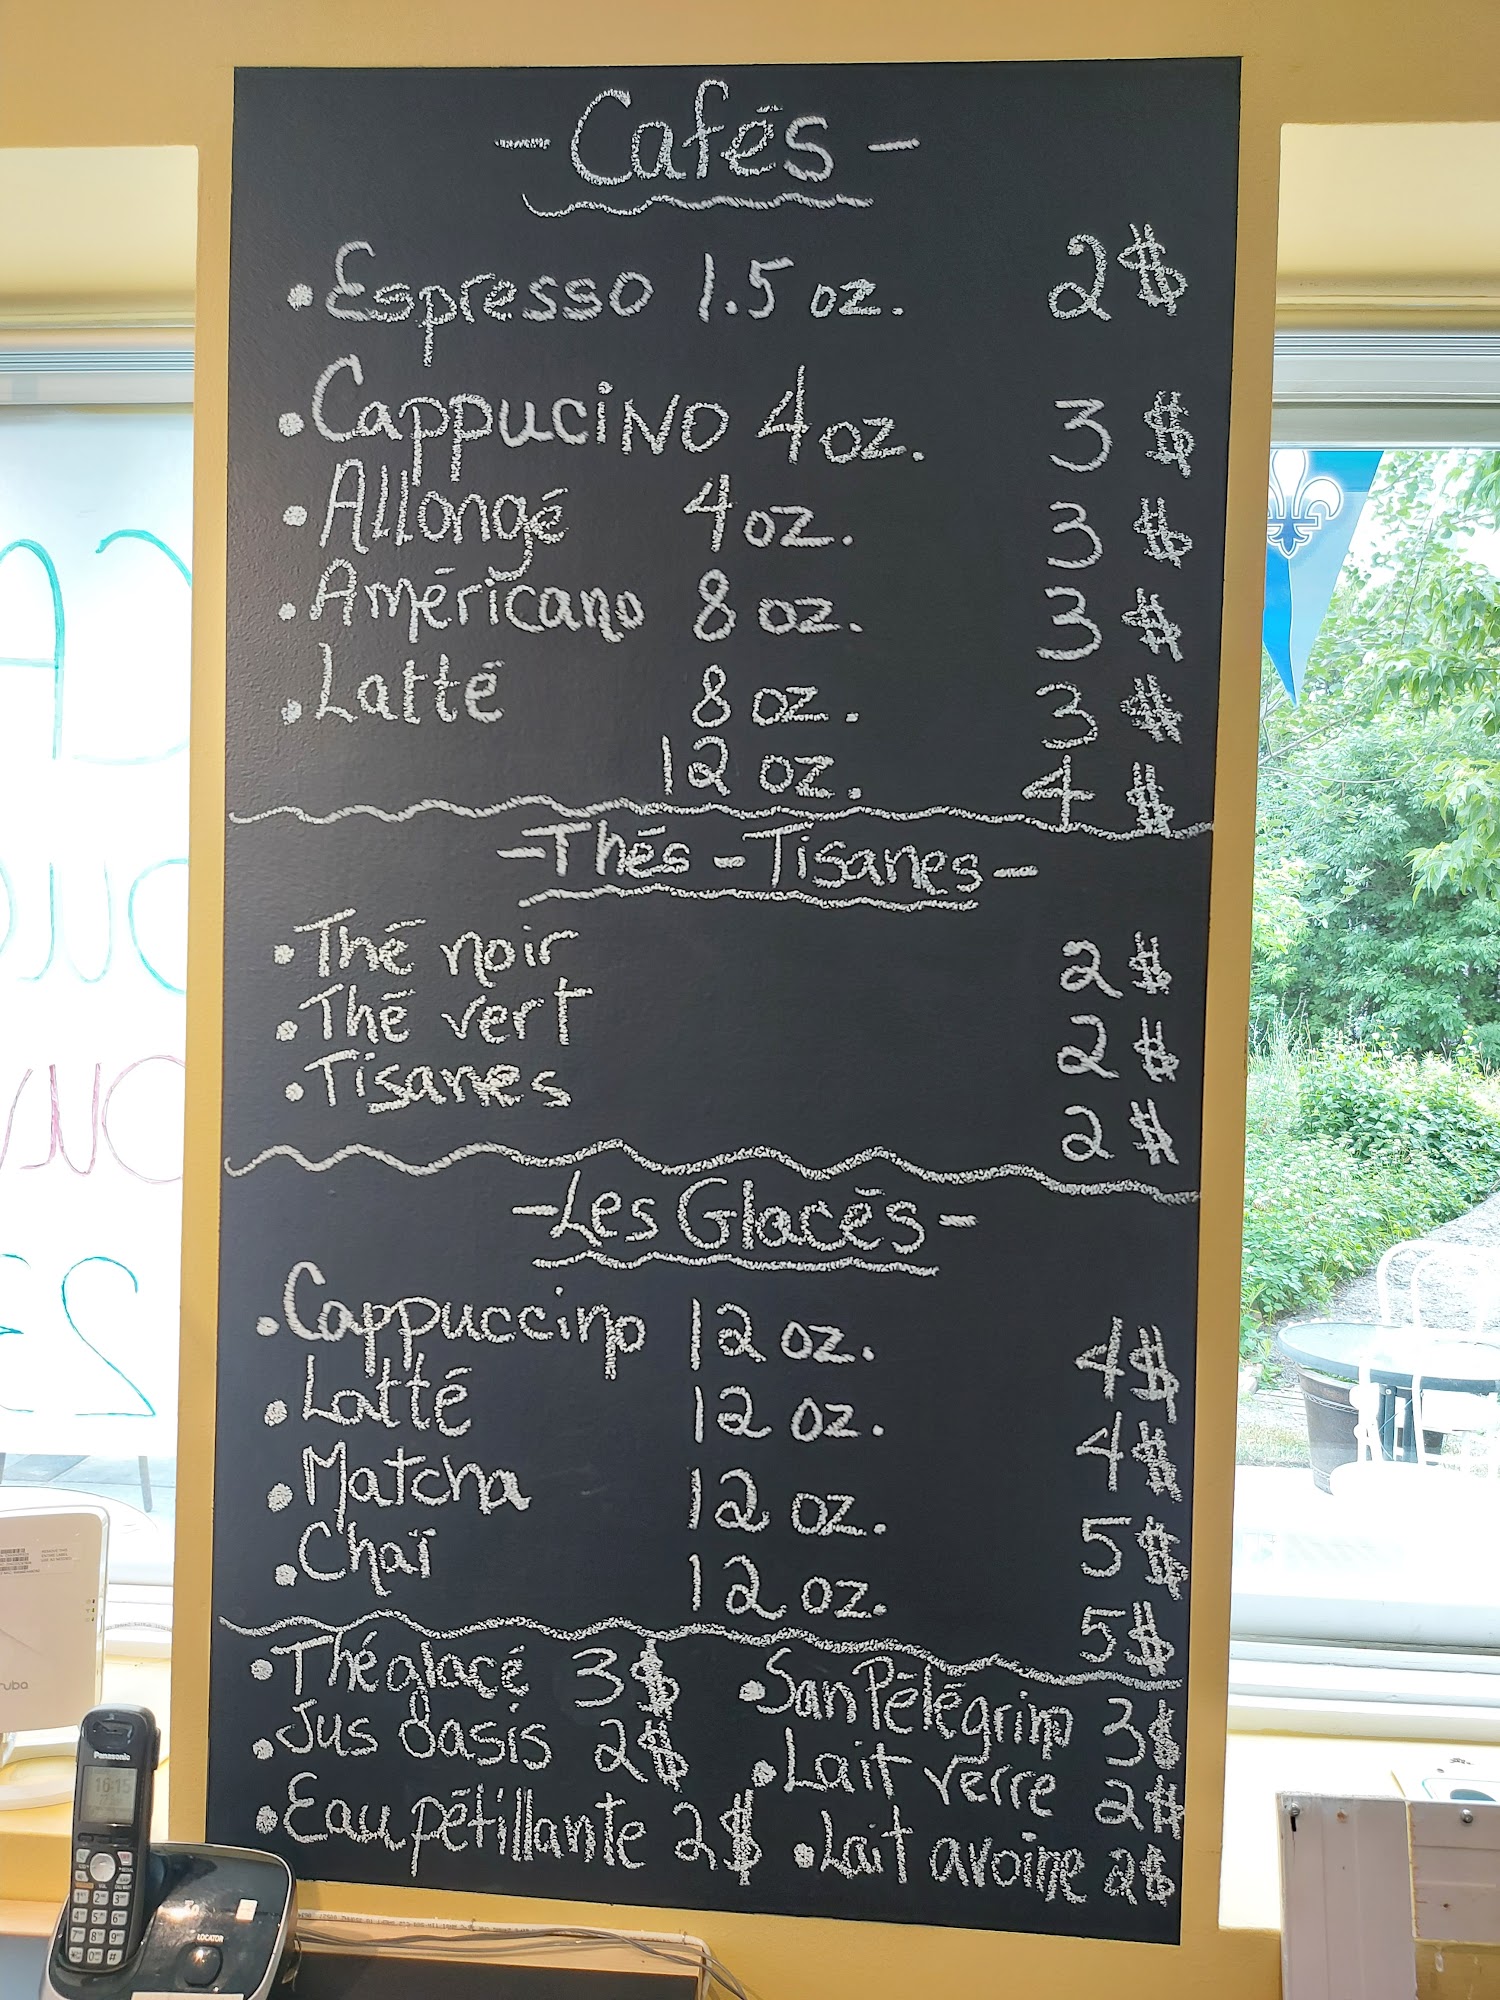 - Cafés -
• Espresso 1.5 oz. 2$
• Cappucino 4 oz. 3 $
• Allongé 4 oz. 3 $
• Américano 8 oz. 3 $
• Latté 8 oz. 3 $
12 oz. 4 $
- Thés - Tisanes -
• Thé noir 2 $
• Thé vert 2 $
• Tisanes 2 $
- Les Glacés -
• Cappuccino 12 oz. 4$
• Latté 12 oz. 4$
• Matcha 12 oz. 5$
• Chaï 12 oz. 5$
• Thé glacé 3$
• Jus Oasis 2$
• Eau pétillante 2$
• San Pélégrino 3$
• Lait verre 2$
• Lait avoine 2$
Panasonic
16:15
LOCATOR